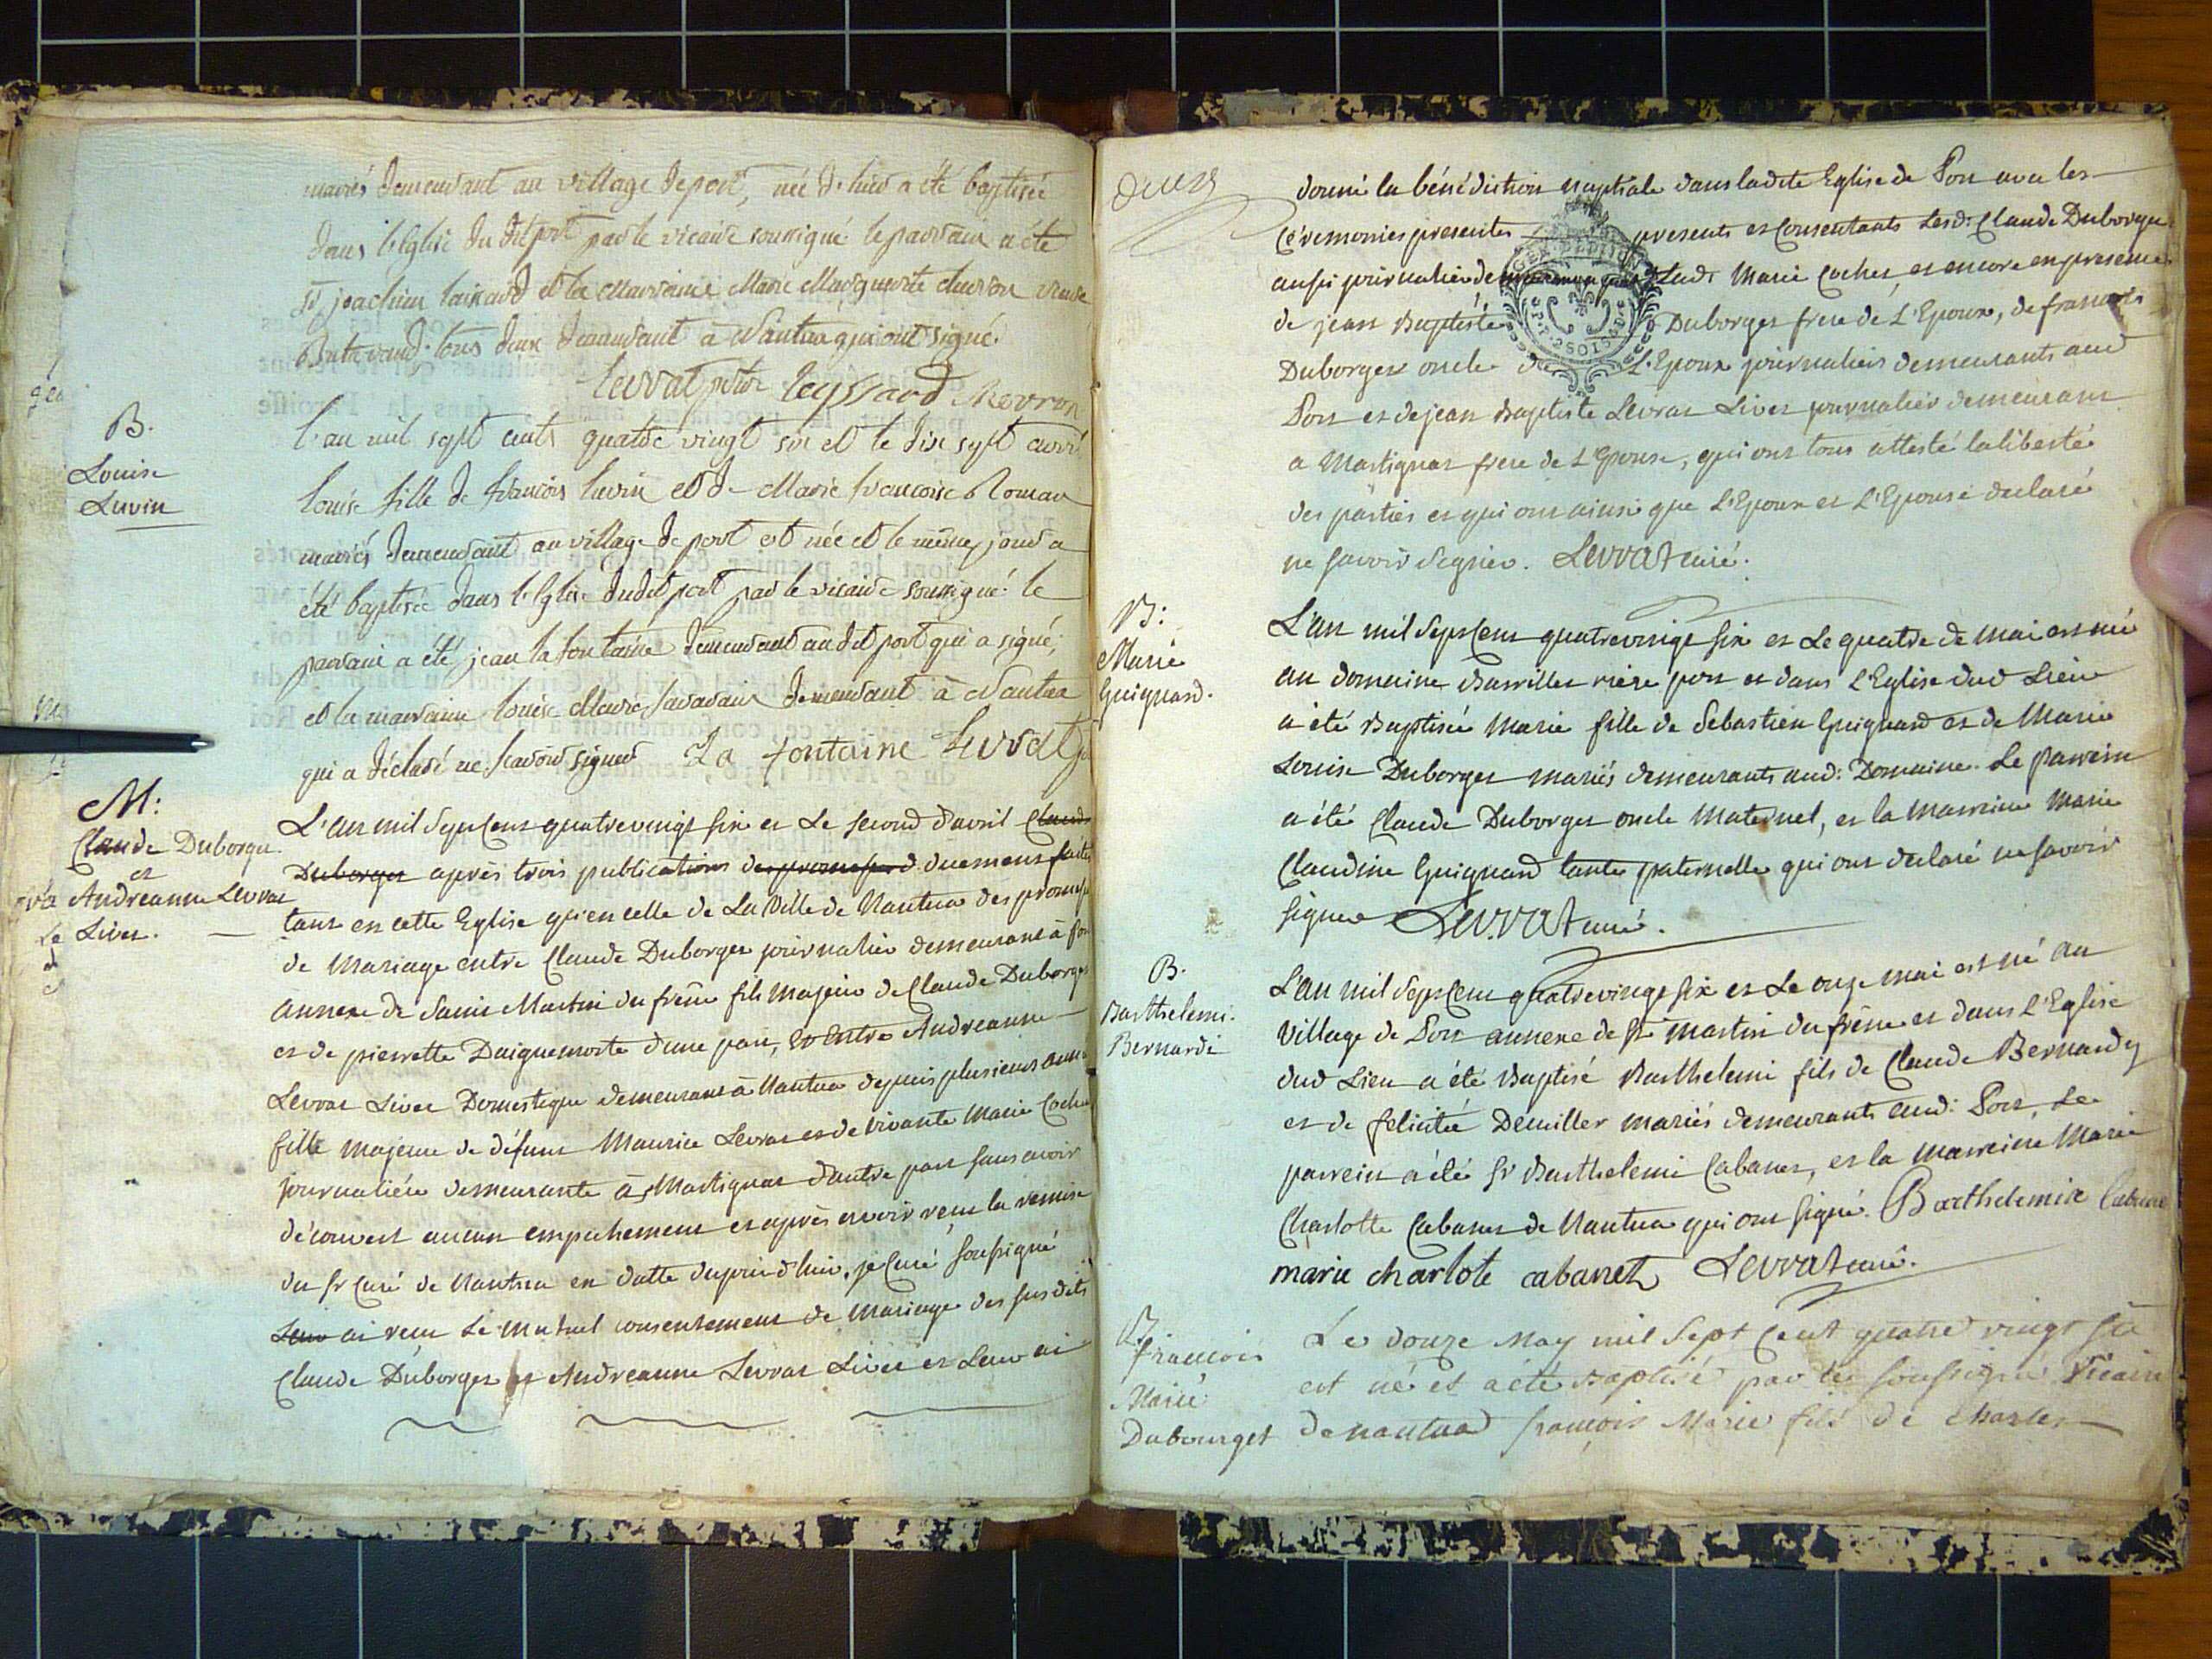 mariés demeurant au village de port, née d'hier a été baptisée
dans l'Eglise du dit port par le vicaire soussigné le parrain a été
Sr joachim et la Marraine Marie Margueritte veuve
tous deux demeurant à Nantua qui ont signé.
Levrat
B.
Louise
Luvin
l'an mil sept cents quatre vingt six et le dix sept avril
louise fille de françois luvin et de Marie françoise Roman
mariés demeurant au village de port est née et le même jour a
été baptisée dans l'Eglise dudit port par le vicaire soussigné le
parrain a été jean la fontaine demeurant au dit port qui a signé,
et la marraine louise Marie demeurant à Nantua
qui a déclaré ne scavoir signer La fontaine Levrat
M:
Claude Duborget
et
Andreanne Levrat
Livet.
L'an mil Sept Cent quatrevingt six et Le second d'avril Claude
Duborget après trois publications des promesses d. duement faites
tant en cette Eglise qu'en celle de La Ville de Nantua des promesses
de Mariage entre Claude Duborget journalier demeurant à Port
annexe de Saint Martin du frêne fils majeur de Claude Duborget
et de pierrette Daiguemorte d'une part, Et Entre Andreanne
Levrat Livet Domestique demeurant à Nantua depuis plusieurs années
fille majeure de défunt Maurice Levrat et de vivante Marie Cochet
journalière demeurante à Martignat d'autre part sans avoir
découvert aucun empechement et après avoir reçu la remise
du Sr Curé de Nantua en datte du jour d'hier, je Curé Soussigné
Leur ai reçu Le mutuel consentement de Mariage des susdits
Claude Duborget et Andreanne Levrat Livet et Leur ai
deux
donné la bénédiction nuptiale dans ladite Eglise de Port avec les
Cérémonies presentes presents et Consentants Lesd: Claude Duborget
aussi journalier Marie Cochet, et encore en presence
de jean Baptiste Duborget frere de L'Epoux, de françois
Duborget oncle de L'Epoux journaliers demeurants aud
Port et de jean Baptiste Levrat Livet journalier demeurant
a Martignat frere de L'Epouse, qui ont tous attesté la liberté
des parties et qui ont ainsi que L'Epoux et L'Epouse declaré
ne savoir signer. Levrat curé.
B:
Marie
Guignard.
L'an mil Sept Cent quatrevingt six et Le quatre de mai est née
au domaine rière port et dans L'Eglise dud Lieu
a été Baptisée Marie fille de Sebastien Guignard et de Marie
Louise Duborget mariés demeurants aud: Domaine. Le parrein
a été Claude Duborget oncle Maternel, et la marreine Marie
Claudine Guignard tante paternelle qui ont declaré ne savoir
signer Levrat curé.
B.
Barthelemi.
Bernardi
L'an mil Sept Cent quatrevingt six et Le onze mai est né au
Village de Port annexe de St Martin du frêne et dans L'Eglise
dud Lieu a été Baptisé Barthelemi fils de Claude Bernardy
et de felicitée Demiller mariés demeurants aud: Port, Le
parrein a été Sr Barthelemi Cabanet, et la marreine Marie
Charlotte Cabanet de Nantua qui ont signé. Barthelemi Cabanet
marie charlote cabanet Levrat curé.
B
françois
Marie
Dubourget
Le douze May mil Sept Cent quatre vingt six
est né et a été Baptisé par le soussigné Vicaire
de nantua françois Marie fils de Charles